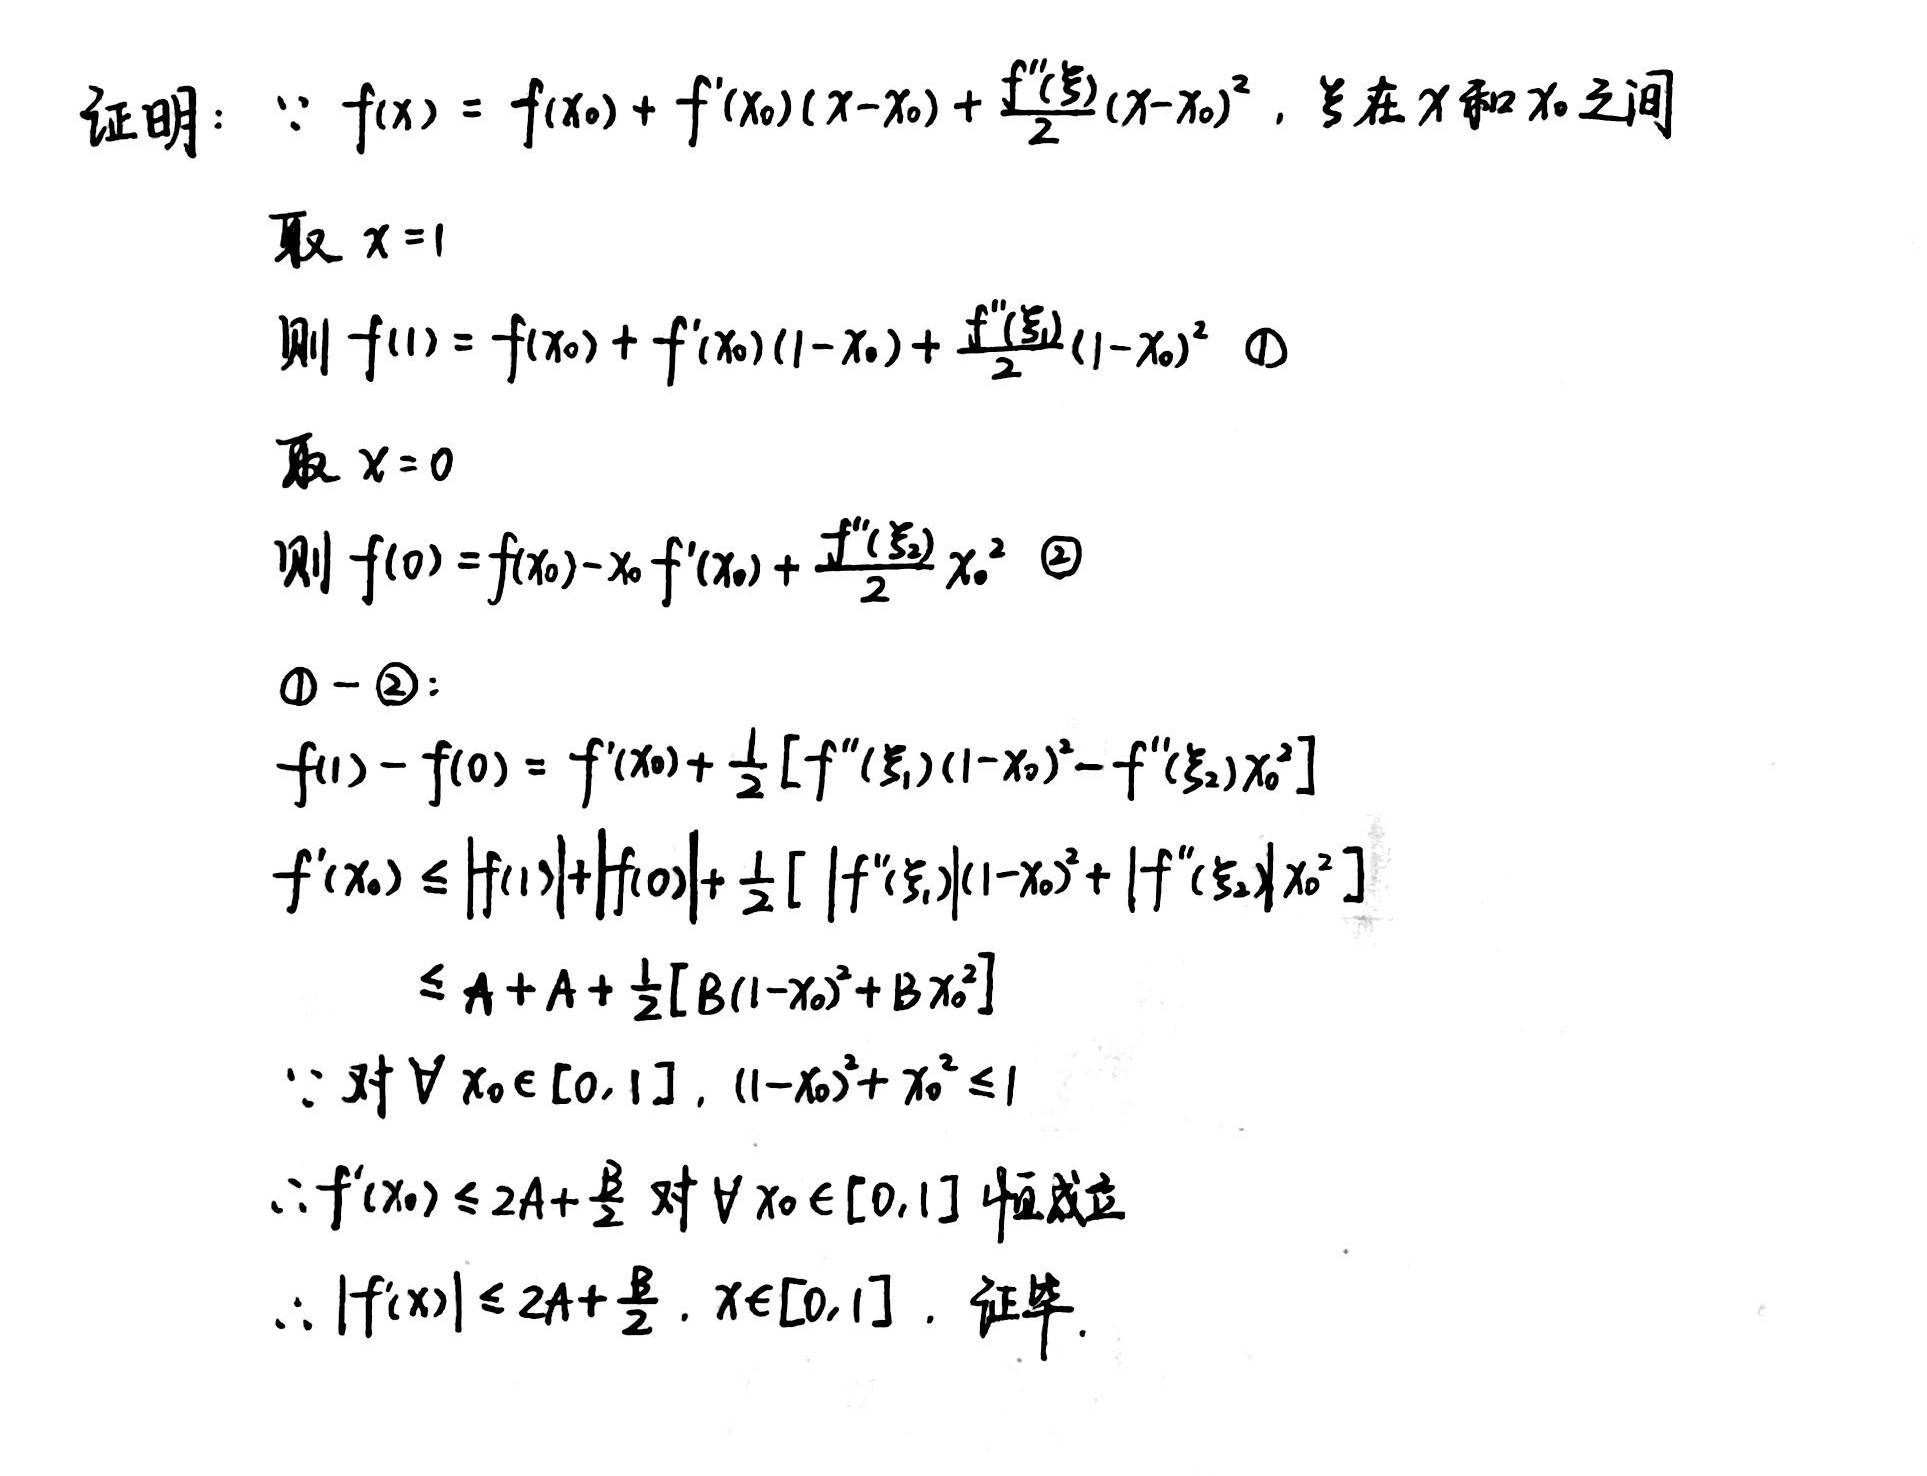 证明: ∵ f(x) = f(x₀) + f'(x₀)(x-x₀) + f''(ξ)/2 (x-x₀)², ξ在x和x₀之间
取 x=1
则 f(1) = f(x₀) + f'(x₀)(1-x₀) + f''(ξ₁)/2 (1-x₀)² ①
取 x=0
则 f(0) = f(x₀) - x₀f'(x₀) + f''(ξ₂)/2 x₀² ②
① - ②:
f(1) - f(0) = f'(x₀) + 1/2 [f''(ξ₁)(1-x₀)² - f''(ξ₂)x₀²]
f'(x₀) ≤ |f(1)| + |f(0)| + 1/2 [|f''(ξ₁)|(1-x₀)² + |f''(ξ₂)|x₀²]
≤ A + A + 1/2 [B(1-x₀)² + Bx₀²]
∵ 对 ∀ x₀∈[0,1], (1-x₀)² + x₀² ≤ 1
∴ f'(x₀) ≤ 2A + B/2 对 ∀ x₀∈[0,1] 恒成立
∴ |f'(x)| ≤ 2A + B/2, x∈[0,1]. 证毕.